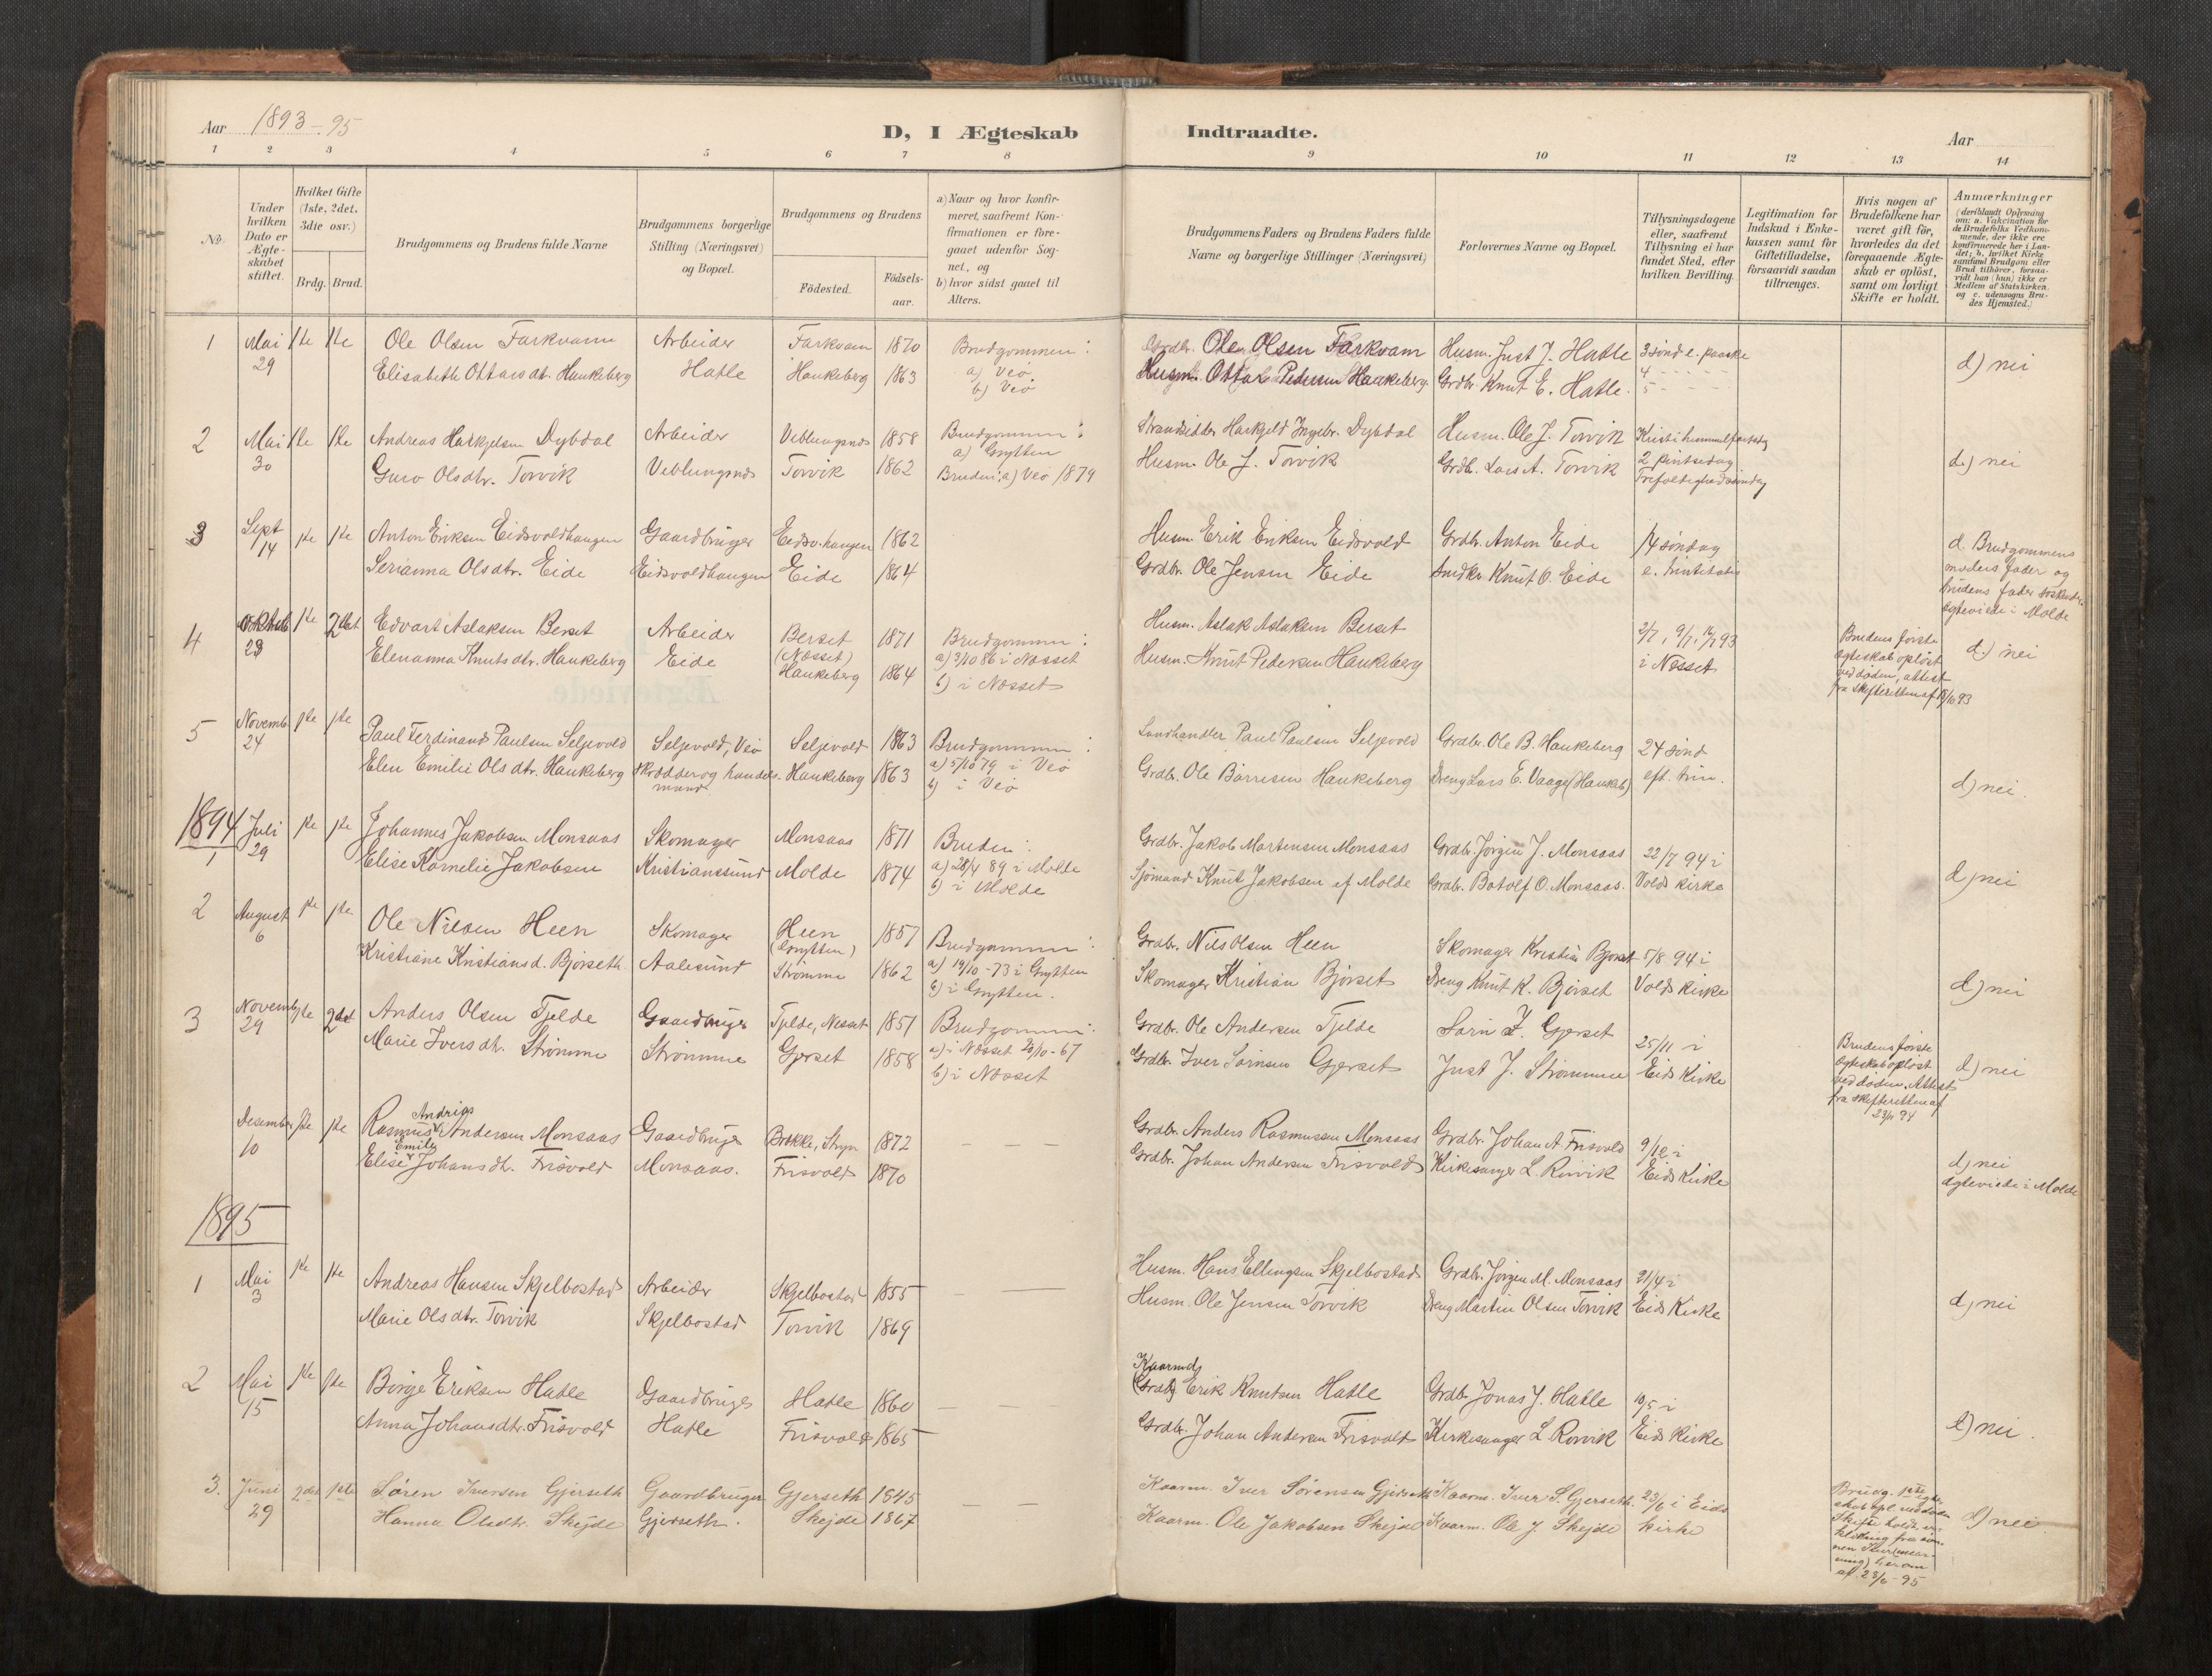 Aar 1893-95
D, I Ægteskab Indtraadte.
Aar
1 2 3 4 5 6 7 8 9 10 11 12 13 14
No.
Under hvilken Dato er Ægteskabet stiftet.
Hvilket Gifte (1ste, 2det, 3die osv.)
Brdg. Brud.
Brudgommens og Brudens fulde Navne
Brudgommens borgerlige Stilling (Næringsvei) og Bopæl.
Brudgommens og Brudens
Fødested.
Fødselsaar.
a) Naar og hvor konfirmeret, saafremt Konfirmationen er foregaaet udenfor Sognet, og
b) hvor sidst gaaet til Alters.
Brudgommens Faders og Brudens Faders fulde Navne og borgerlige Stillinger (Næringsvei)
Forlovernes Navne og Bopæl.
Tillysningsdagene eller, saafremt Tillysning ei har fundet Sted, efter hvilken Bevilling.
Legitimation for Indskud i Enkekassen samt for Giftetilladelse, forsaavidt saadan tiltrænges.
Hvis nogen af Brudefolkene har været gift før, hvorledes da det foregaaende Ægteskab er opløst, samt om lovligt Skifte er holdt.
Anmærkninger
(deriblandt Oplysning om: a. Vakcination for de Brudefolks Vedkommende, der ikke ere konfirmerede her i Landet; b. hvilket Kirkesamfund Brudgom eller Brud tilhører, forsaavidt han (hun) ikke er Medlem af Statskirken. og c. udensogns Brudes Hjemsted.)
1 Mai 1ste 1ste Ole Olsen Farkvam Arbeider Farkvam 1870 Brudgommen: Grdbr. Ole Olsen Farkvam Husm. Just J. Hatle 3 sønd e. paaske
29 Elisabeth Ottarsdt. Haukeberg Hatle Haukeberg 1863 a) Veø Husm. Ottar Pedersen Haukeberg Grdbr. Knut E. Hatle. 4 - - - d) nei
b) Veø 5 - - -
2 Mai 1ste 1ste Andreas Haskjelsen Dybdal Arbeider Veblungsnæs 1858 Brudgommen: Strandsidder Haskjeld Ingebr. Dybdal Husm. Ole J. Torvik Kristi himmelfartsdag
30 Guro Olsdtr. Torvik Veblungsnæs Torvik 1862 a) Grytten Husm. Ole J. Torvik Grdb. Lars A. Torvik 2 pintsedag d.) nei
Bruden: a) Veø 1879 Trefoldighedssøndag
3 Sept 1ste 1ste Anton Eriksen Eidsvoldhaugen Gaardbruger Eidsv.haugen 1862 Husm. Erik Eriksen Eidsvold Grdbr. Anton Eide 14 søndag
14 Serianna Olsdtr. Eide Eidsvoldhaugen Eide 1864 Grdbr. Ole Jensen Eide Smdkr. Knut O. Eide e. trinitatis
d. Brudgommens
moders fader og
brudens fader søskende.
Ægteviede i Molde
4 Oktob 1ste 2det Edvart Aslaksen Berset Arbeider Berset 1871 Brudgommen: Husm. Aslak Aslaksen Berset 2/7, 9/7, 16/7 93 Brudens første
28 Elenanna Knutsdtr. Haukeberg Eide (Næsset) a) 3/10 86 i Næsset Husm. Knut Pedersen Haukeberg i Næsset ægteskab opløst d.) nei
Haukeberg 1864 b) i Næsset ved døden, attest
fra skifteretten af 18/10 93
5 Novemb 1ste 1ste Paul Ferdinand Paulsen Seljevold Seljevold, Veø Seljevold 1863 Brudgommen: Landhandler Paul Paulsen Seljevold Grdbr. Ole B. Haukeberg 24 sønd
24 Elen Emilie Olsdtr. Haukeberg skrædder og handelsmand Haukeberg 1863 a) 5/10 79 i Veø Grdbr. Ole Børresen Haukeberg Dreng Lars E. Vaage (Haukeb) eft. trin. d) nei.
b) i Veø
1894
1 Juli 1ste 1ste Johannes Jakobsen Monsaas Skomager Monsaas 1871 Bruden: Grdbr. Jakob Mortensen Monsaas Grdbr. Jørgen J. Monsaas 22/7 94 i
29 Elise Kornelie Jakobsen Kristianssund Molde 1874 a) 28/4 89 i Molde Sjømand Knut Jakobsen af Molde Grdbr. Botolf O. Monsaas. Volds kirke d) nei
b) i Molde
2 August 1ste 1ste Ole Nilsen Heen Skomager Heen 1857 Brudgommen: Grdbr. Nils Olsen Heen Skomager Kristian Bjørset 5/8 94 i
6 Kristiane Kristiansd. Bjørseth Aalesund (Grytten) a) 19/10-73 i Grytten Skomager Kristian Bjørset Dreng Knut K. Bjørset Volds kirke d) nei
Strømme 1862 b) i Grytten.
3 Novemb 1ste 2det Anders Olsen Tjelde Gaardbruger Tjelde, Nesset 1851 Brudgommen: Grdbr. Ole Andersen Tjelde Sørn I. Gjerset 25/11 i Brudens første
29 Marie Iversdt. Strømme Strømme Gjerset 1858 a) i Næsset 20/10-67 Grdbr. Iver Sørnsen Gjerset Just J. Strømme Eids Kirke Ægteskab opløst d) nei
b) i Næsset ved døden. Attest
fra skifteretten af
23/11 94
Desember 1ste 1ste Rasmus Andrias Andersen Monsaas Gaardbruger Brække, Stryn 1872 - - - Grdbr. Anders Rasmussen Monsaas Grdbr. Johan A. Frisvold 9/12 i
10 Elise Emilie Johansdt. Frisvold Monsaas. Frisvold 1870 Grdbr. Johan Andersen Frisvold Kirkesanger L. Rørvik Eids Kirke d) nei
Ægteviede i Molde
1895
1 Mai 1ste 1ste Andreas Hansen Skjelbostad Arbeider Skjelbostad 1855 - — Husm. Hans Ellingsen Skjelbostad Grdbr. Jørgen M. Monsaas 21/4 i
3 Marie Olsdtr. Torvik Skjelbostad Torvik 1869 Husm. Ole Jensen Torvik Dreng Martin Olsen Torvik Eids Kirke d) nei
2 Mai 1ste 1ste Børge Eriksen Hatle Gaardbruger Hatle 1860 - - - Kaarmd. (Grdb) Erik Knutsen Hatle Grdbr. Jonas J. Hatle 10/5 i
15 Anna Johansdtr. Frisvold Hatle Frisvold 1865 Grdbr. Johan Andersen Frisvold Kirkesanger L. Rørvik Eids Kirke d) nei.
3. Juni 2det 1ste Søren Iversen Gjerseth Gaardbruger Gjerseth 1845 - - Kaarm. Iver Sørensen Gjerseth Kaarm. Iver S. Gjerseth. 23/6 i Eids
29 Hanna Olsdtr. Skejde Gjerseth. Skejde 1867 Kaarm. Ole Jakobsen Skejde Kaarm. Ole J. Skejde kirke d) nei
Brudg. 1ste egte
skab opl. ved døden
Skifte holdt, er
klæring fra
herom
af 23/6-95